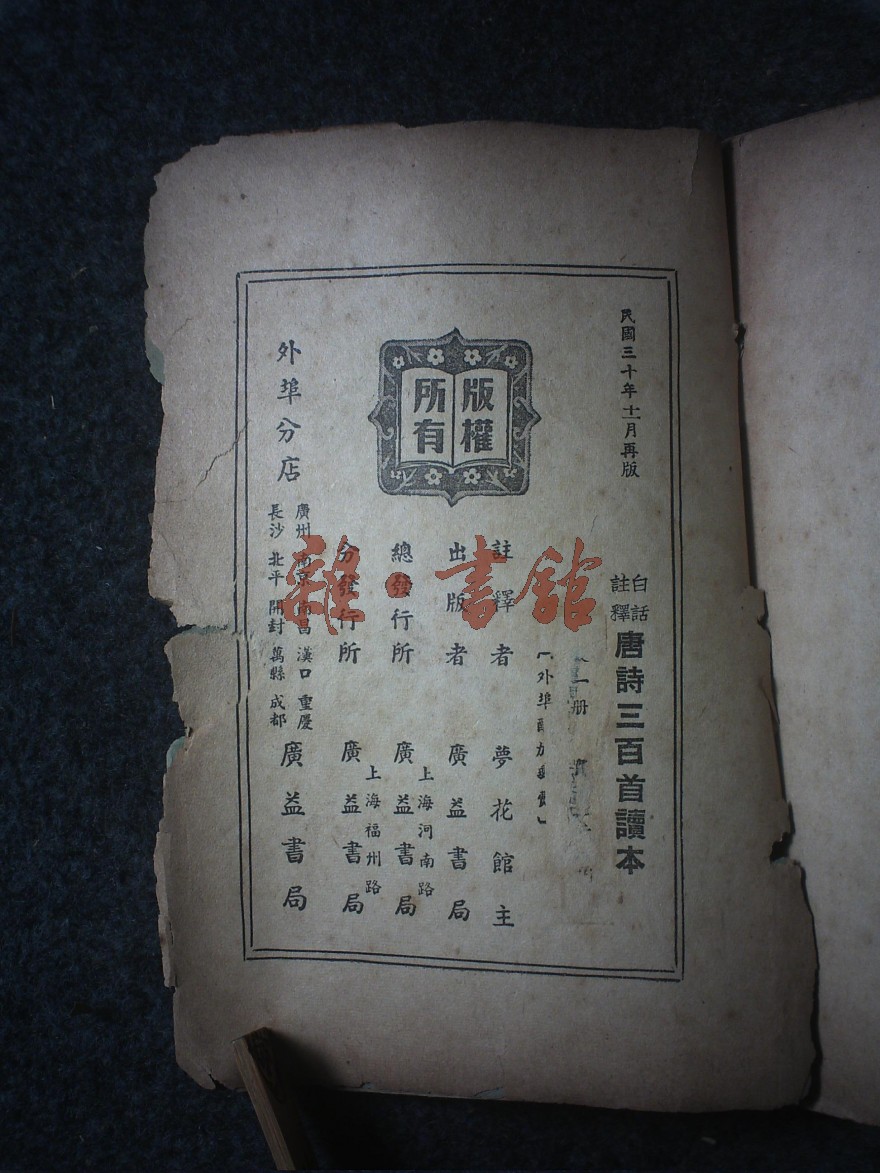 民國三十年十一月再版
白話註釋唐詩三百首讀本
一册
外埠
版權所有
註釋者 夢花館主
出版者 廣益書局
總發行所 上海河南路 廣益書局
分發行所 上海福州路 廣益書局
外埠分店 廣州 南京 南昌 漢口 重慶
長沙 北平 開封 萬縣 成都 廣益書局
雜·書館